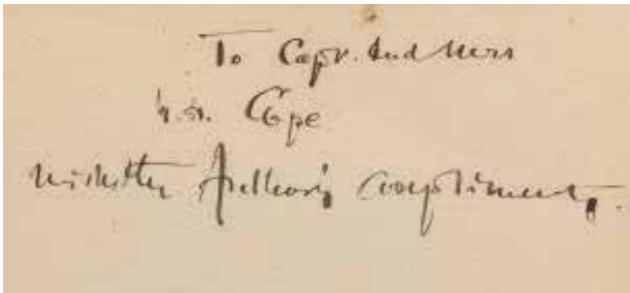 To Capt. And Mrs
Cope
with the Author's Compliments.